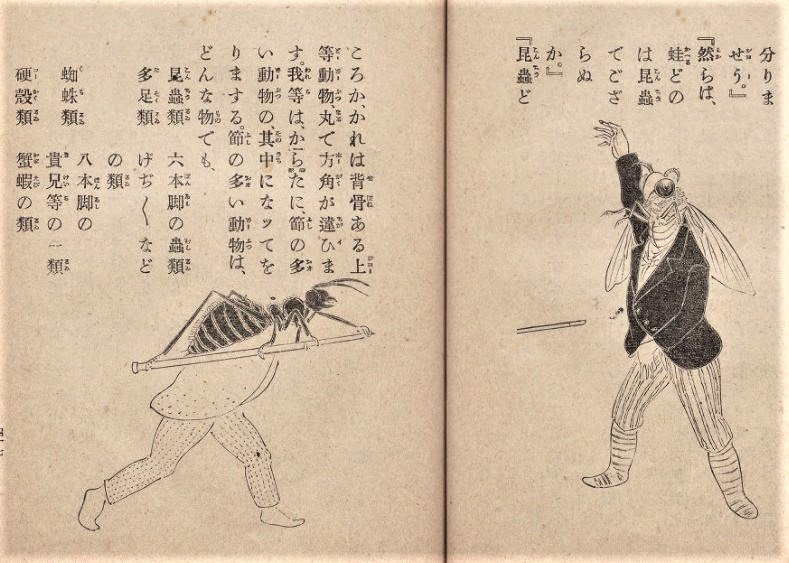 分りま
せう。』
『然らば、
蛙どの
は昆蟲
でござ
らぬ
か。』
『昆蟲ど
ころか、かれは背骨ある上
等動物、丸で方角が違ひま
す。我等は、からだに、節の多
い動物の、其中になッてを
りまする。節の多い動物は、
どんな物でも、
昆蟲類 六本脚の蟲類
多足類 げぢ〱など
の類
蜘蛛類 八本脚の
貴兄等の一類
硬殼類 蟹蝦の類